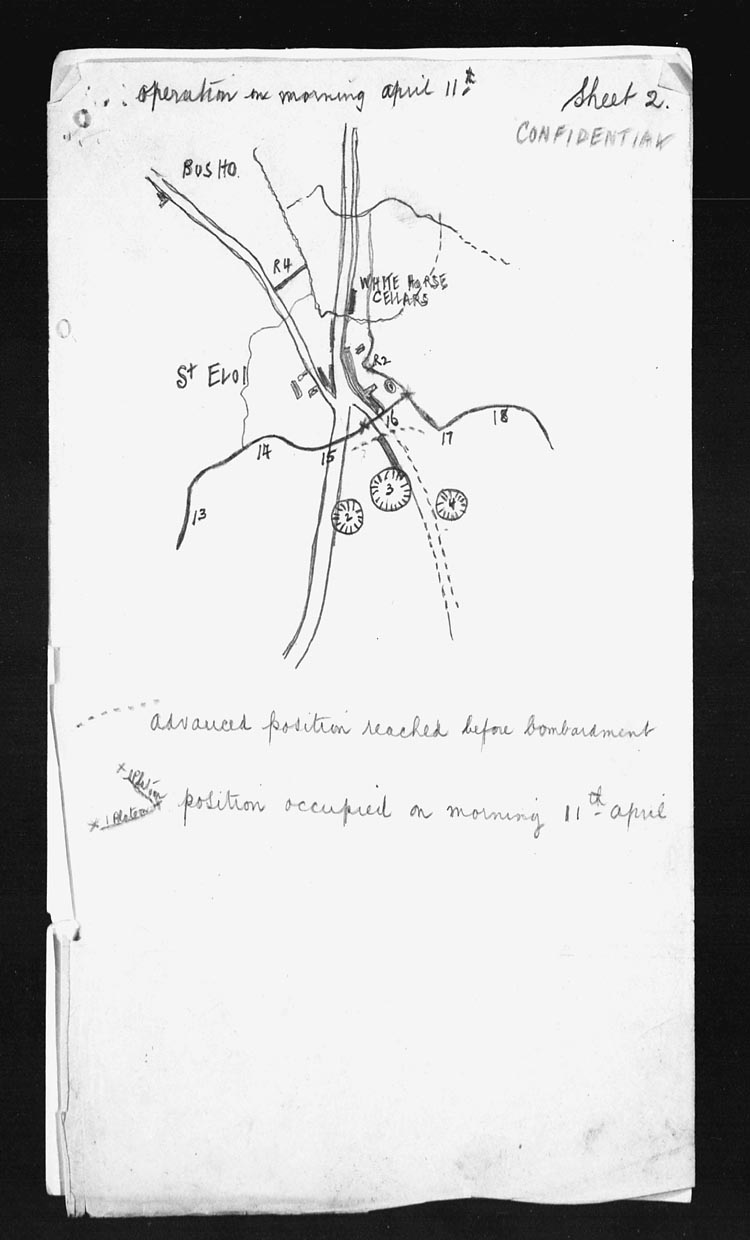 operation on morning april 11th
Sheet 2.
CONFIDENTIAL
BUS HO.
R4
WHITE HORSE
CELLARS
R2
St ELOI
16
18
17
14
15
13
3
2
4
advanced position reached before bombardment
1 Platoon
1 Platoon
position occupied on morning 11th april